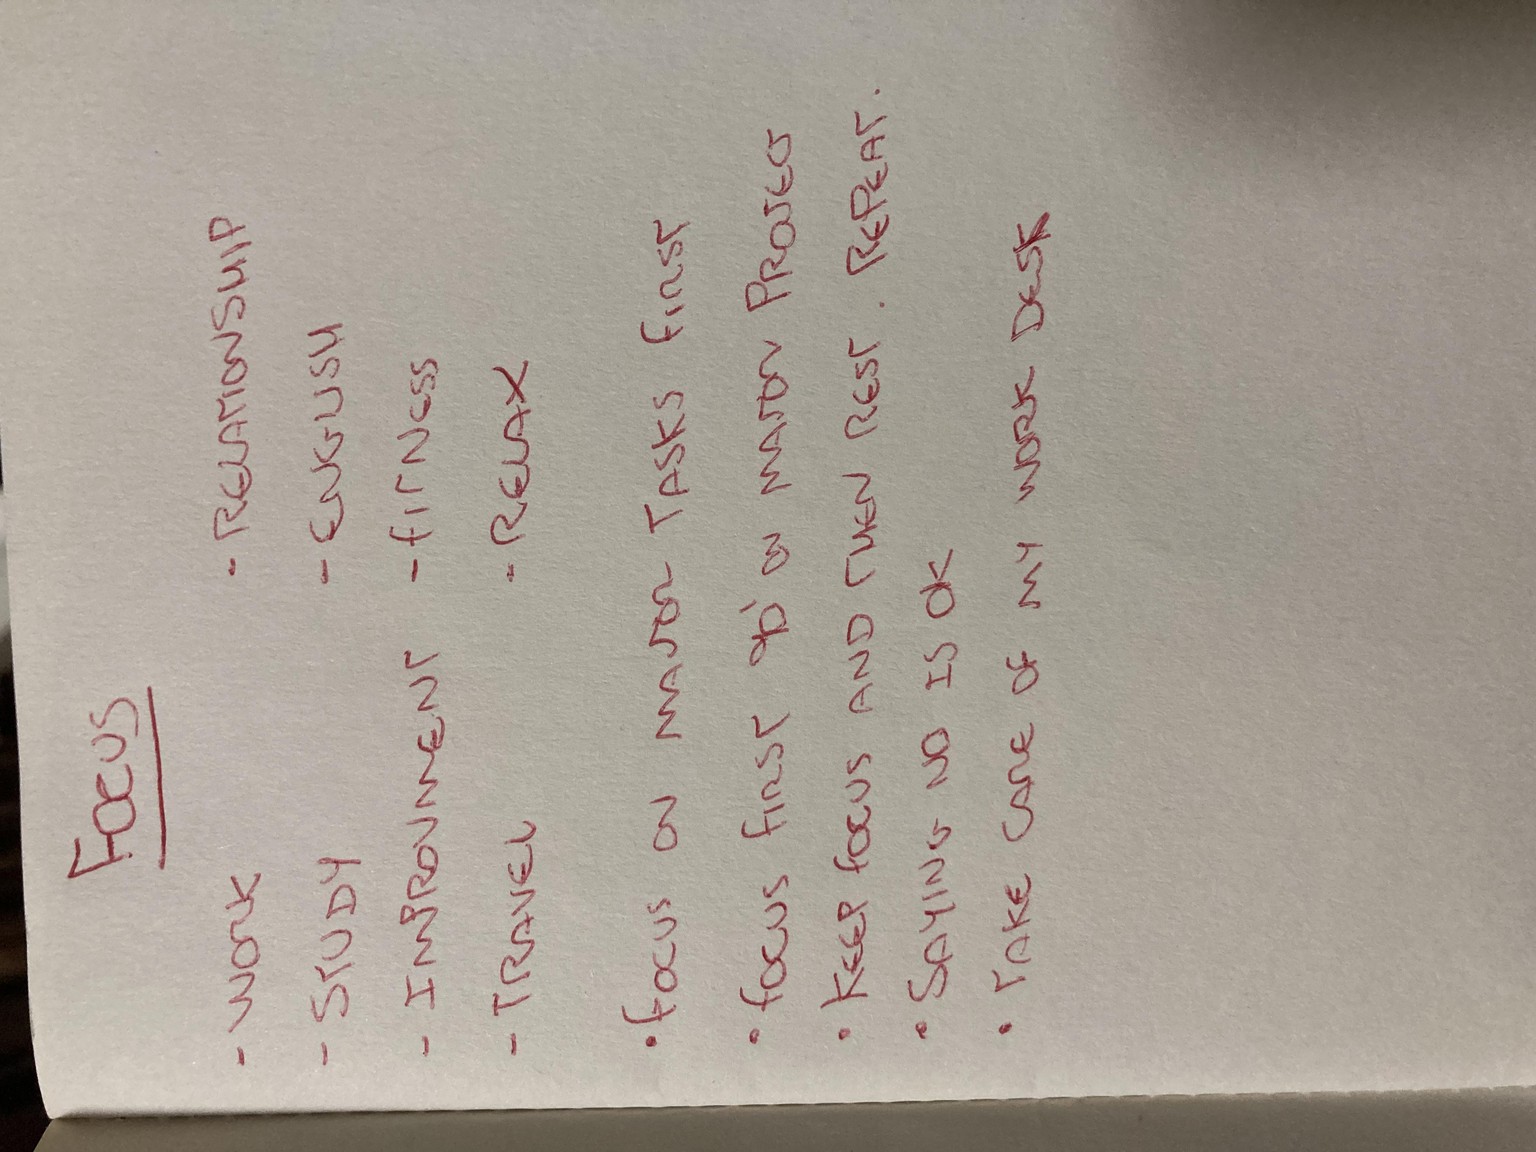 FOCUS
- WORK - RELATIONSHIP
- STUDY - ENGLISH
- IMPROVMENT - FITNESS
- TRAVEL - RELAX
• FOCUS ON MAJOR TASKS FIRST
• FOCUS FIRST ON MAJOR PROJECT
• KEEP FOCUS AND THEN REST. REPEAT.
• SAYING NO IS OK
• TAKE CARE OF MY WORK DESK